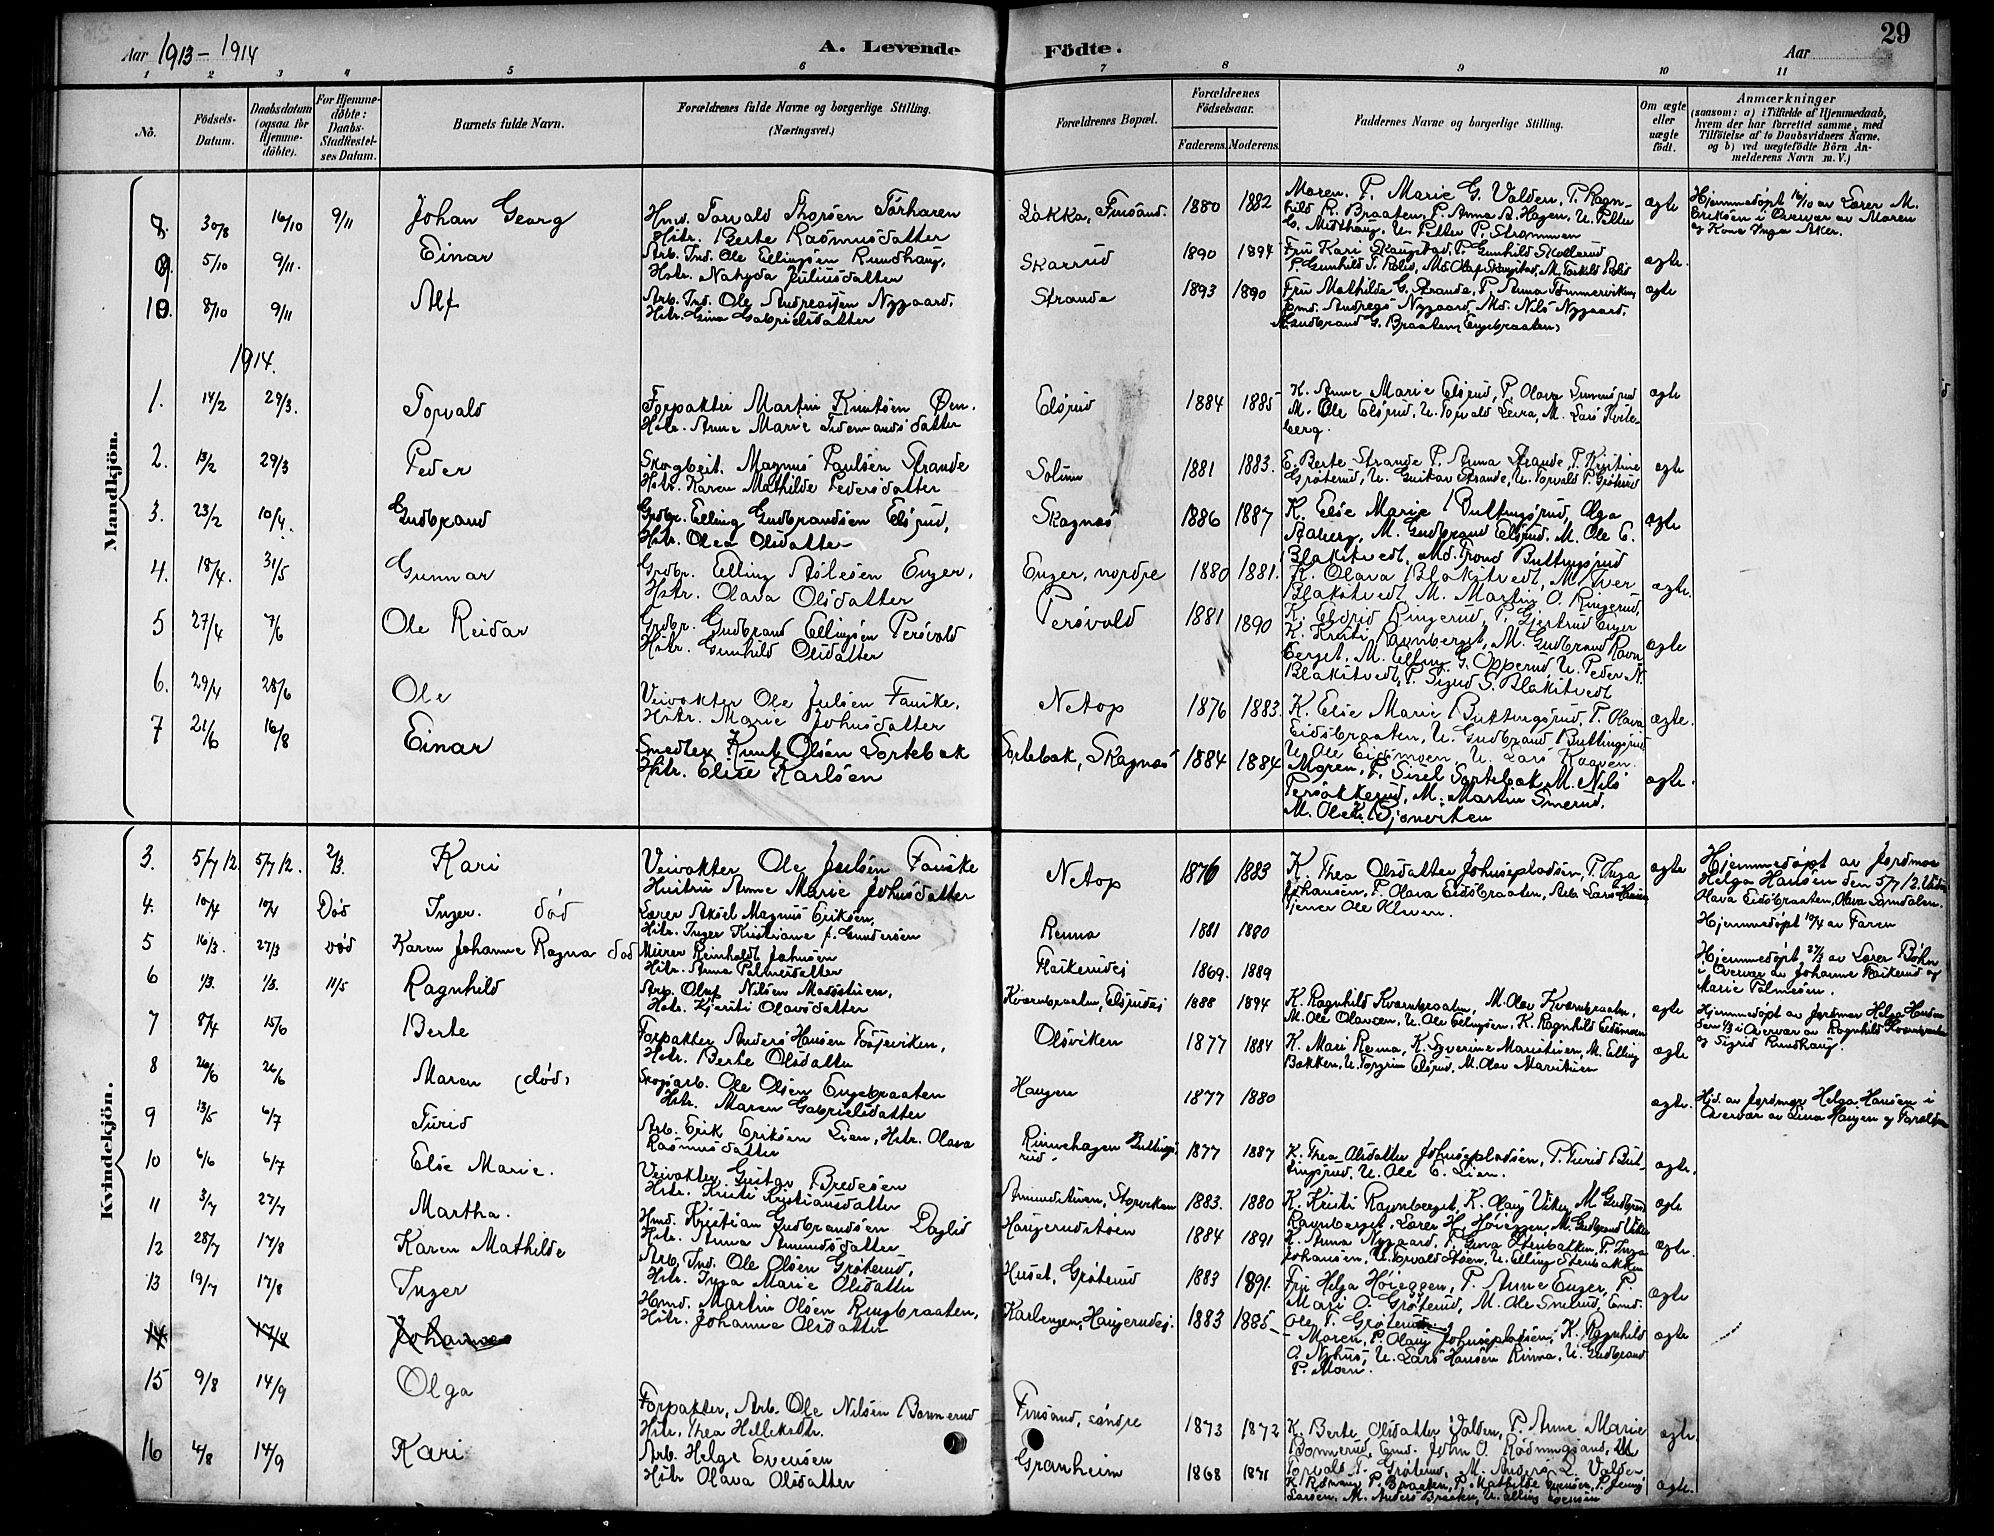 29
Aar 1913 - 1914
A. Levende Födte.
Aar
1 2 3 4 5 6 7 8 9 10 11
No.
Födsels-Datum.
Daabsdatum (ogsaa for Hjemme-döbte).
For Hjemme-döbte: Daabs-Stadfæstel-ses Datum.
Barnets fulde Navn.
Forældrenes fulde Navne og borgerlige Stilling.
(Næringsvei.)
Forældrenes Bopæl.
Forældrenes Födselsaar.
Faderens. Moderens.
Faddernes Navne og borgerlige Stilling.
Om ægte eller uægte födt.
Anmærkninger
(saasom: a) i Tilfælde af Hjemmedaab,
hvem der har forrettet samme, med
Tilföielse af to Daabsvidners Navne.
og b) ved uægtefödte Börn An-
melderens Navn m. V.)
Mandkjön.
8. 30/8 16/10 9/11 Johan Georg
Hmd. Torvald Thorsen
Hstr. Berte Rasmusdatter
Løkka, Finsand. 1880 1882
Maren, P. Marie G. Valden, P. Ragn-
hild R. Braaten, P. Anna A. Hagen, U. Petter
U. Petter P. Strømmen
ægte
Hjemmedøpt 16/10 av Lærer M.
Eriksen i Overvær av Maren
og Kone Inga Aker.
9 5/10 9/11. Einar
Arb. Ind. Ole Ellingsen Rundhaug,
Hstr. Juliusdatter
Skarrud 1890 1894
Fru Kari Skaugstad, P. Gunhild Skollerud
P. Gunhild T. Rolid, Md. Olaf Skaugstad, M.
ægte.
10. 8/10 9/11 Alf
Arb. Ind. Ole Andreassen Nygaard.
Hstr. Gina Gabrielsdatter
Strande 1893 1890
Fru Mathilde G. Strande, P. Anna Tømmerviken,
Gmd. Andreas Nygaard, Md. Nils Nygaard,
M. Gudbrand G. Braaten, Engebraaten,
ægte
1914.
1. 14/2 29/3. Torvald
Forpakter Martin Knutsen Øen.
Hstr. Anne Marie Tidemandsdatter
Elsrud 1884 1885
K. Anne Marie Elsrud, P. Olava
M. Ole Elsrud, U. Torvald Leira, M. Lars Hvite-
berg.
ægte
2. 13/2 29/3 Peder
Skogbeit. Magnus Paulsen Strande
Hstr. Karen Mathilde Pedersdatter
Solum 1881 1883.
E. Berte Strande P. Anna Strande, P. Kristine
Grøterud, U. Gustav Strande, U. Torvald P. Grøterud
ægte
3. 23/2 10/4. Gudbrand
Grdbr. Elling Gudbrandsen Elsrud,
Hstr. Olea Olsdatter
Skagnæs 1886 1887
K. Else Marie Buttingsrud, Olga
Aaberg, M. Gudbrand Elsrud. M. Ole E.
Blakstvedt, Md. Trond Buttingsrud
ægte
4. 18/4. 31/5 Gunnar
Grdbr. Elling Aslesen Enger,
Hstr. Olava Olsdatter
Enger, nordre 1880 1881.
K. Olava Blakstvedt, M. Iver
Blakstvedt M. Martin O. Ringerud,
K. Eldrid Ringerud, P. Gjertrud Enger
ægte.
5 27/4 7/6 Ole Reidar
Grdbr. Gudbrand Ellingsen Persvold
Hstr. Gunhild Olsdatter
Persvold 1881 1890
K. Kristi Ravnberget, M. Gudbrand Ravn-
berget, M. Elling G. Opperud, U. Peder N.
Blakstvedt, P. Sigrid S. Blakstvedt
ægte
6. 29/4 28/6 Ole
Veivokter Ole Julsen Fauske.
Hstr. Marie Johnsdatter
Netop 1876 1883.
K. Else Marie Buttingsrud, P. Olava
Eidsbraaten, U. Gudbrand Buttingsrud
U. Ole Eidsmoen U. Lars Kagven.
ægte.
7 21/6 16/8 Einar
Smedlex Knut Olsen Sortebæk
Hstr. Elise Karlsen
Sortebæk, Skagnæs 1884 1884
Moren, P. Sisel Sortebæk, M. Nils
Persøkkerud, M. Martin Smerud,
M. Ole K. Bjønviken
ægte.
Kvindekjön.
3. 5/7 12. 5/7 12. 2/3. Kari
Veivokter Ole Julsen Fauske
Hustru Anne Marie Johnsdatter
Netop 1876 1883
K. Thea Olsdatter Johnsepladsen, P. Inga
Johansen, P. Olava Eidsbraaten, Arb. Lars
Tjener Ole Olsen.
ægte
Hjemmedøpt av Jordmor
Helga Hansen den 5/7 12.
Olava Eidsbraaten, Olava
4. 10/4 10/4 Død Inger. død
Lærer Aksel Magnus Eriksen,
Hstr. Inger Kristiane f. Gundersen
Renna 1881 1880
Hjemmedøpt 10/4 av Faren
5 16/3. 27/3 død Karen Johanne Ragna død
Murer Reinholdt Johnsen
Hstr. Anna Palmesdatter
1869. 1889
Hjemmedøpt, 27/3 av Lærer Bøhn
i Overvær av Johanne og
Marie Palmesen.
6 1/3. 1/3. 11/5 Ragnhild
Arb. Oluf Nilsen
Hstr. Kjersti Olavsdatter
Kværnbraaten, Elsrudei 1888 1894
K. Ragnhild Kværnbraaten, M. Olav Kværnbraaten,
M. Ole Olavsen, U. Ole Ellingsen, K. Ragnhild
ægte
Hjemmedøpt av Jordmor Helga Hansen
den 1/3 i Overvær av Ragnhild Kværnbraaten
og Sigrid Rundhaug.
7 8/4 15/6 Berte
Forpakter Anders Hansen
Hstr. Berte Olsdatter
Olsviken 1877 1884
K. Mari Renna, K. Syverine M. Elling
Bakken, U. Torgrim Elsrud, M. Olav
ægte
8 26/6 26/6 Maren (død)
Skogsarb. Ole Olsen Engebraaten
Hstr. Maren Gabrielsdatter
Haugen 1877 1880
ægte.
Hjd. av Jordmor Helga Hansen i
Overvær av Lina Haugen og
9 13/5 6/7 Turid
Arb. Erik Eriksen Lien, Hstr. Olava
Rasmusdatter
Rinnehagen Buttings-
rud. 1877 1887
K. Thea Olsdatter Johnsepladsen, P. Turid But-
tingsrud, U. Ole E. Lien.
ægte.
10 6/6 6/7 Else Marie.
Veivokter Gustav Bredesen
Hstr. Kristi Kristiansdatter
Amundstuen, Storviken 1883. 1880
K. Kristi Ravnberget, K. Olaug Viker, M Gudbrand
Ravnberget, Lærer H. Høieggen, M. Gudbrand Viker
ægte
11 3/7 27/7 Martha.
Hmd. Kristian Gudbrandsen Daglid
Hstr. Anna Amundsdatter
Haugerudstøen 1884 1891
K. Anna Nygaard, P. Stenbakken, P. Inga
Johansen, U. Torvald Støen, U. Elling Stenbakken
ægte.
12 28/7 17/8 Karen Mathilde
Arb. Ind. Ole Olsen Grøterud,
Hstr. Inga Marie Olsdatter
Huset, Grøterud 1883 1891.
Fru Helga Høieggen, P. Anne Enger, P.
Mari O. Grøterud, M. Ole Smerud, Gmd.
Ole T. Grøterud
ægte
13 19/7 17/8 Inger
Hmd. Martin Olsen Ringbraaten,
Hstr. Johanne Olsdatter
Karlengen, Haugerudei. 1883 1885
Moren, P. Olaug Johnsepladsen, K. Ragnhild
O. Nyhus, U. Lars Hansen Rinna, U. Gudbrand
P. Moen.
ægte
14 17/8 Johannes
15 9/8 14/9 Olga
Forpakter, Arb. Ole Nilsen Bonnerud
Hstr. Thea Helleksdtr.
Finsand, søndre 1873 1872
K. Berte Olsdatter Valden, P. Anne Marie
Bonnerud, Gmd. John O. Rødningsand, U.
Torvald T. Grøterud, M. Anders L. Valden,
ægte.
16 4/8 14/9 Kari
Arb. Helge Evensen
Hstr Olava Olsdatter
Granheim 1868 1871
P. Braaten, P. Mathilde Evensen, P. Jenny
Larsen, M. Anders Braaten, U. Elling Evensen
ægte.